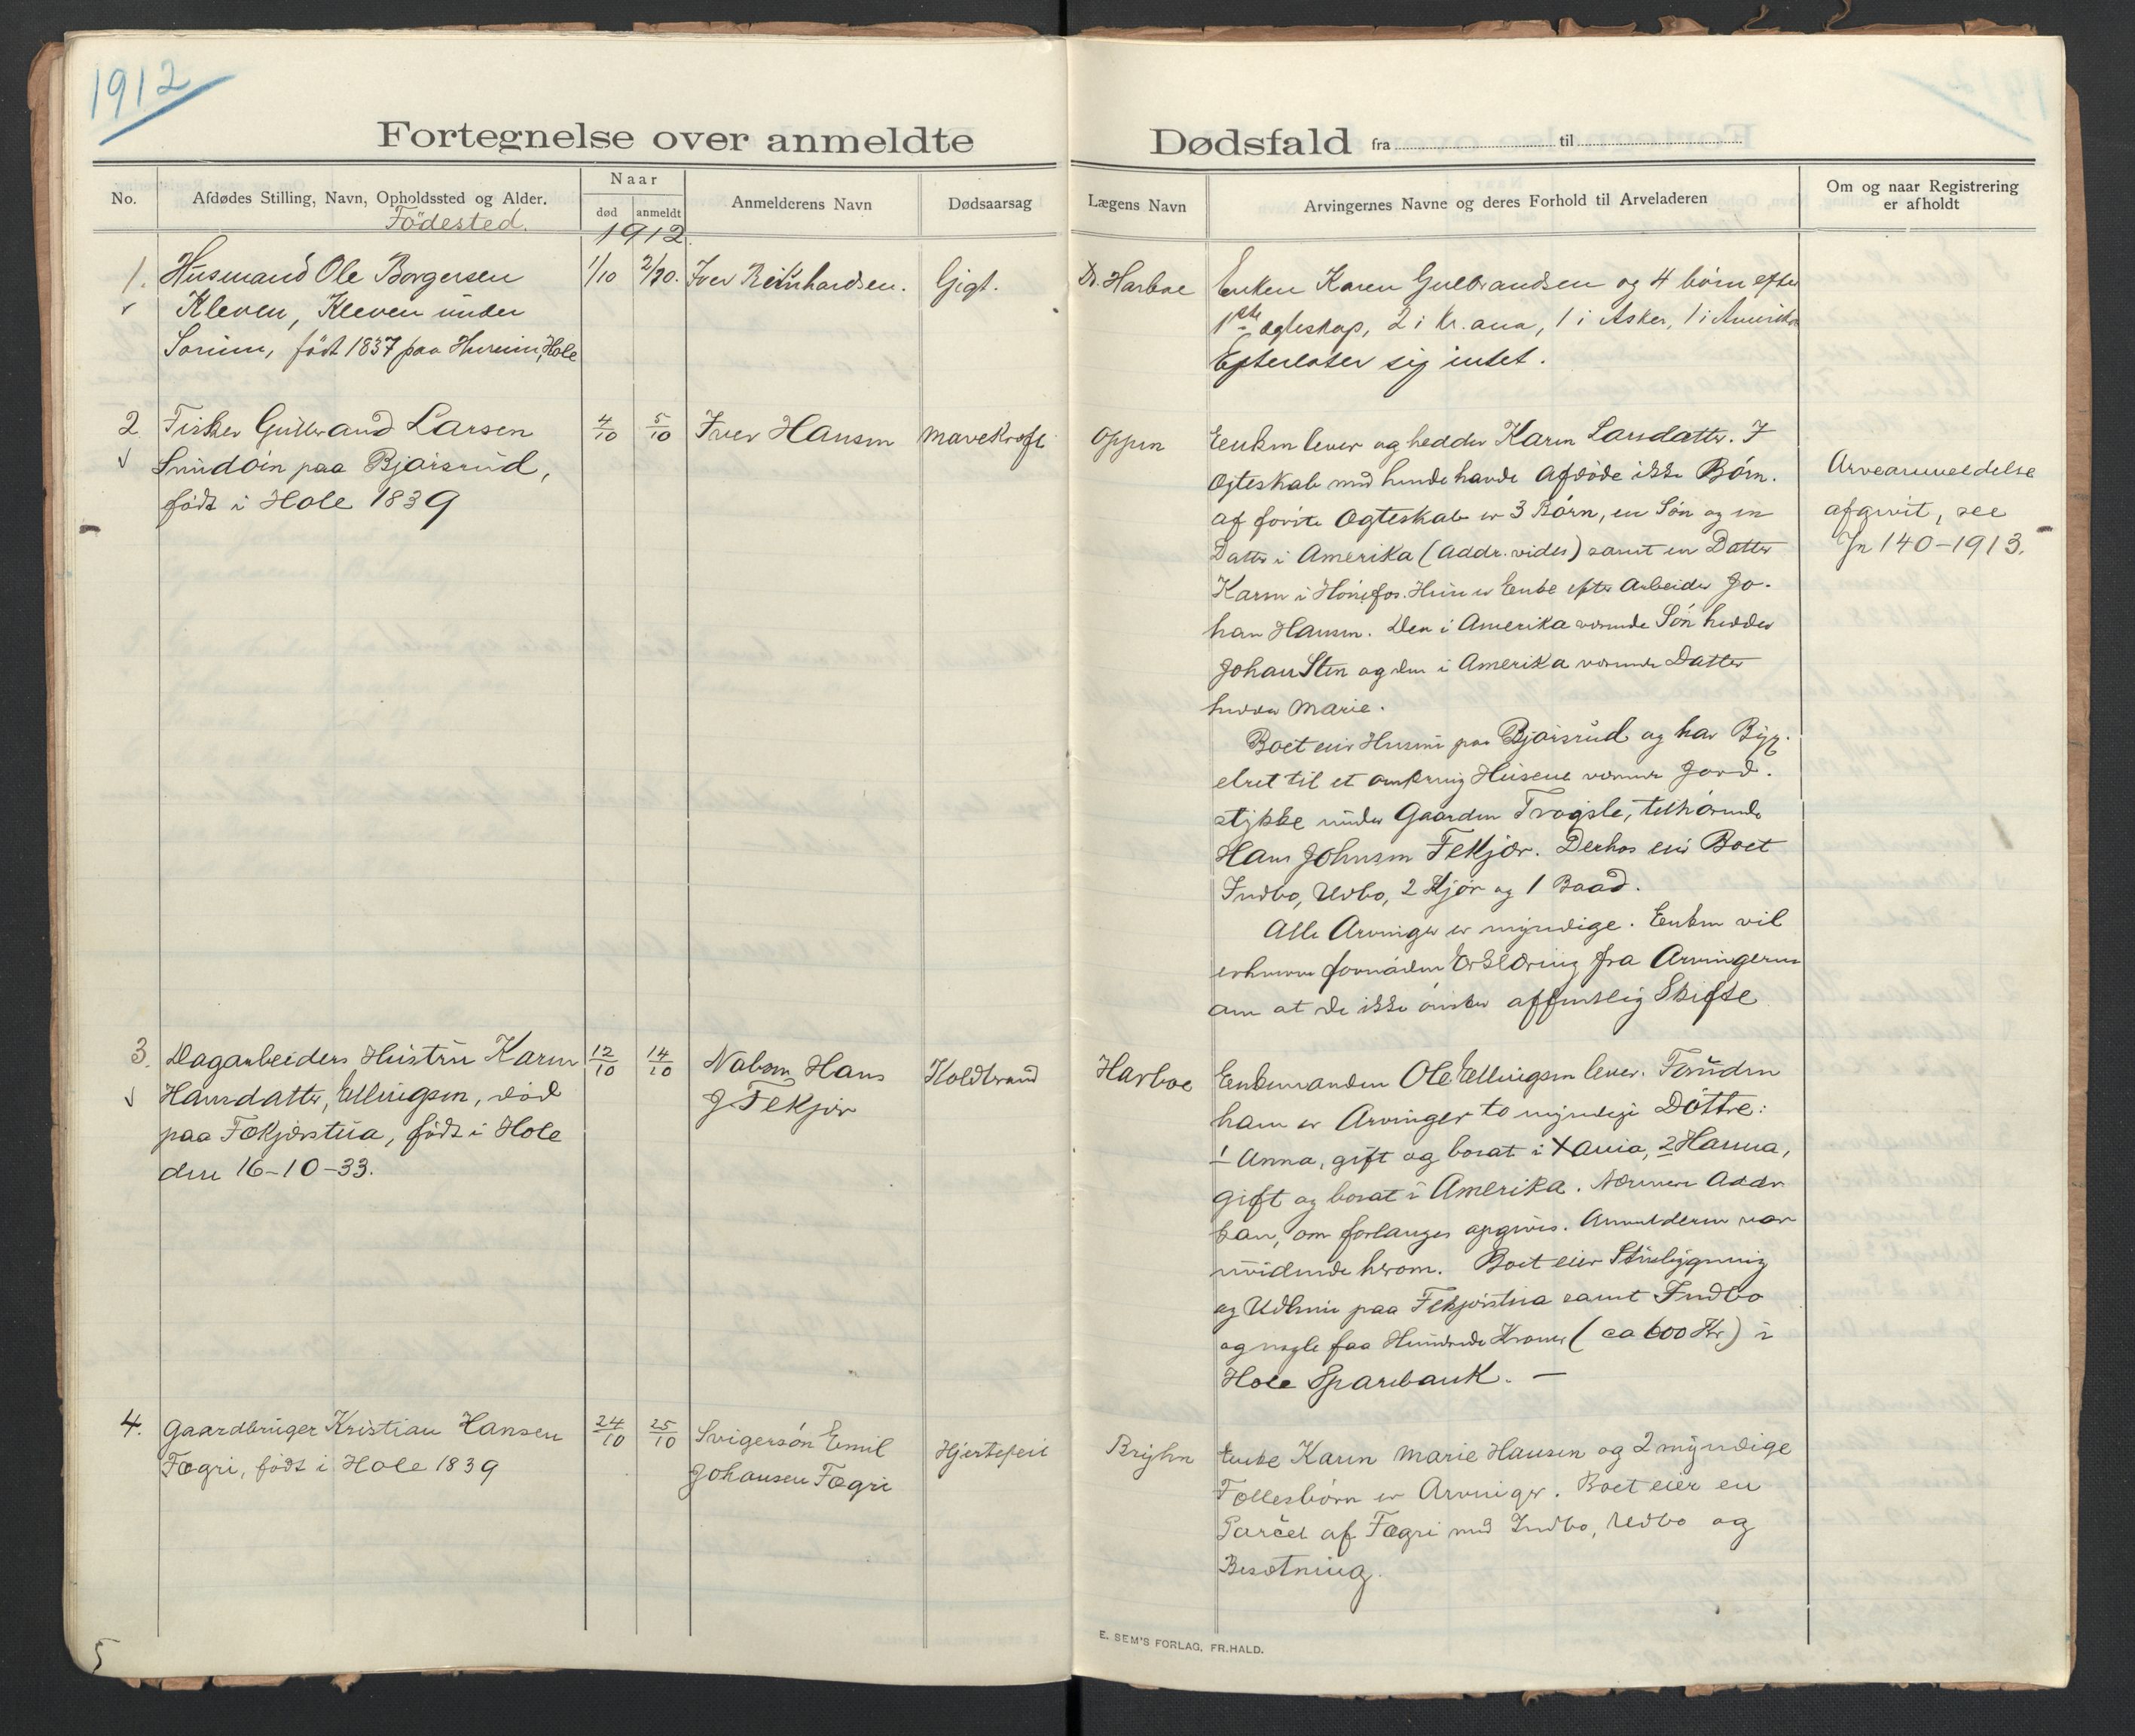 1912
Fortegnelse over anmeldte Dødsfald fra til
No.
Afdødes Stilling, Navn, Opholdssted og Alder.
Födested.
Naar
død
anmeldt
1912.
Anmelderens Navn
Dødsaarsag
Lægens Navn
Arvingernes Navne og deres Forhold til Arveladeren
Om og naar Registrering
er afholdt
1.
Husmand Ole Borgersen
Kleven, Kleven under
født 1837 paa Hole
1/10
2/10.
Iver Reinhardsen.
Gigt.
Dr. Harboe
Enken Karen Gulbrandsen og 4 börn efter
1ste ægteskap, 2 i Kr.ania, 1 i Asker, 1 i Amerika
Efterlater sig intet.
2
Fisker Gulbrand Larsen
Sundöin paa Bjørsrud,
født i Hole 1839
4/10
5/10
Iver Hansen
Mavekræft
Oppen
Eenken lever og hedder Karen Larsdatter. I
Ægteskab med hende havde Afdøde ikke Børn.
Af første Ægteskab er 3 Børn, en Søn og en
Datter i Amerika (Addr. vides) samt en Datter
Karen i Hønefos. Hun er Enke efter Arbeider Jo-
han Hansen. Den i Amerika værende Søn hedder
Johan Sten og den i Amerika værende Datter
hedder Marie.
Boet eier Husene paa Bjørsrud og har Byg-
elret til et omkring Husene værende Jord-
stykke under Gaarden Trøgsle, tilhørende
Hans Johnsen Fekjær. Derhos eier Boet
Indbo, Udbo, 2 Kjør og 1 Baad.
Alle Arvinger er myndige. Enken vil
erhverve fornøden Erklæring fra Arvingerne
om at de ikke ønsker offentlig Skifte
Arveanmeldelse
afgivit, see
Jn 140-1913.
3.
Dagarbeiders Hustru Karen
Hansdatter, Ellingsen, død
paa Fækjærstua, født i Hole
den 16-10-33.
12/10
14/10
Naboen Hans
J Fekjær
Koldbrand
Harboe
Enkemanden Ole Ellingsen lever. Foruden
ham er Arvinger to myndige Døttre:
1 Anna, gift og bosat i Xania, 2 Hanna,
gift og bosat i Amerika. Nærmere Addr
kan, om forlanges opgives. Anmelderen var
uvidende herom. Boet eier Stuebygning
og Udhus paa Fekjærstua samt Indbo
og nogle faa Hundrede Kroner (ca 600 Kr) i
Hole Sparebank. —
4.
Gaardbruger Kristian Hansen
Fægri, født i Hole 1839
24/10
25/10
Svigersøn Emil
Johansen Fægri
Hjertefeil
Bryhn
Enke Karen Marie Hansen og 2 myndige
Fællesbørn er Arvinger. Boet eier en
Parcel af Fægri med Indbo, Udbo og
Besætning.
5
E. SEM'S FORLAG, FR.HALD.